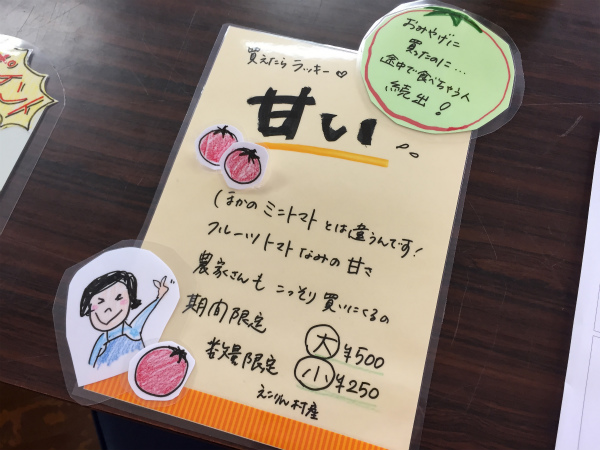 おみやげに
買ったのに…
途中で食べちゃう人
続出！
買えたら ラッキー♡
甘い
ほかの ミニトマト とは違うんです！
フルーツトマト なみの 甘さ
農家さんも こっそり 買いにくるの
期間限定
大 ¥500
数量限定
小 ¥250
えこりん村産